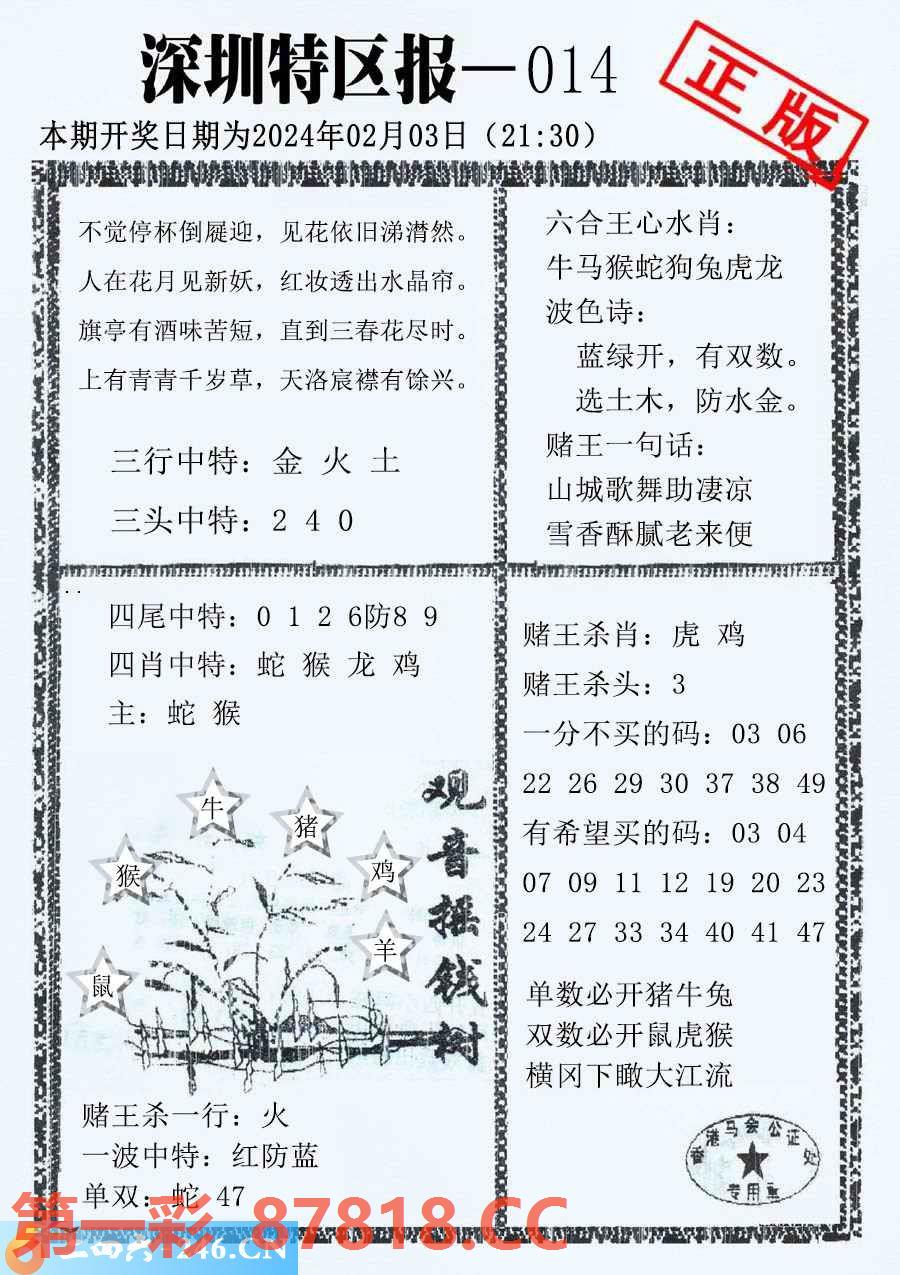 深圳特区报—014
正版
本期开奖日期为2024年02月03日（21:30）
不觉停杯倒屣迎，见花依旧涕潸然。
人在花月见新妖，红妆透出水晶帘。
旗亭有酒味苦短，直到三春花尽时。
上有青青千岁草，天洛宸襟有馀兴。
三行中特：金 火 土
三头中特：2 4 0
六合王心水肖：
牛马猴蛇狗兔虎龙
波色诗：
蓝绿开，有双数。
选土木，防水金。
赌王一句话：
山城歌舞助凄凉
雪香酥腻老来便
四尾中特：0 1 2 6防8 9
四肖中特：蛇 猴 龙 鸡
主：蛇 猴
观音摇钱树
牛
猪
猴
鸡
羊
鼠
赌王杀一行：火
一波中特：红防蓝
单双：蛇 47
赌王杀肖：虎 鸡
赌王杀头：3
一分不买的码：03 06
22 26 29 30 37 38 49
有希望买的码：03 04
07 09 11 12 19 20 23
24 27 33 34 40 41 47
单数必开猪牛兔
双数必开鼠虎猴
横冈下瞰大江流
香港马会公证处
专用章
第一彩 87818.CC
246.CN